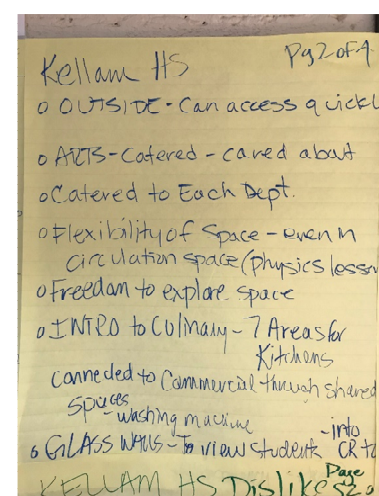 Kellam HS Pg 2 of 4
o OUTSIDE - Can access quickl
o ARTS - Catered - cared about
o Catered to Each Dept.
o Flexibility of Space - even in
circulation space (physics lesson
o Freedom to explore space
o INTRO to Culinary - 7 Areas for
Kitchens
connected to Commercial through shared
spaces
- washing machine
o GLASS WALLS - To view student - into CR to
KELLAM HS Dislikes Page